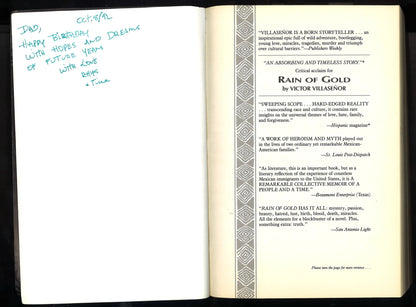 Oct. 8/92
DAD,
HAPPY BIRTHDAY
WITH HOPES AND DREAMS
OF FUTURE YEARS
WITH LOVE
+ Tina
"VILLASEÑOR IS A BORN STORYTELLER . . . an
inspirational epic full of wild adventure, bootlegging,
young love, miracles, tragedies, murder and triumph
over cultural barriers."—Publishers Weekly
"AN ABSORBING AND TIMELESS STORY."*
Critical acclaim for
RAIN OF GOLD
by VICTOR VILLASEÑOR
"SWEEPING SCOPE. . . HARD-EDGED REALITY
. . . transcending race and culture, it contains rare
insights on the universal themes of love, hate, family,
and forgiveness."
—Hispanic magazine*
"A WORK OF HEROISM AND MYTH played out
in the lives of two ordinary yet remarkable Mexican-
American families."
—St. Louis Post-Dispatch
"As literature, this is an important book, but as a
literary reflection of the experience of countless
Mexican immigrants to the United States, it is A
REMARKABLE COLLECTIVE MEMOIR OF A
PEOPLE AND A TIME."
—Beaumont Enterprise (Texas)
"RAIN OF GOLD HAS IT ALL: mystery, passion,
beauty, hatred, lust, birth, blood, death, miracles.
All the elements for a blockbuster of a novel. Plus,
something extra: truth."
—San Antonio Light
Please turn the page for more reviews . . .